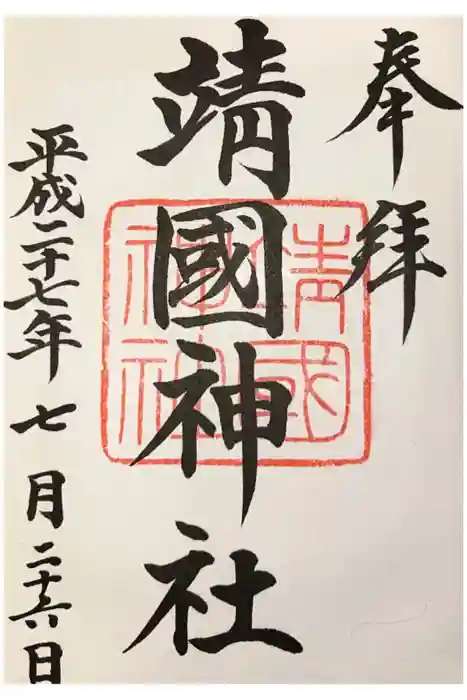 奉拝
靖國神社
靖國
神社
平成二十七年七月二十六日